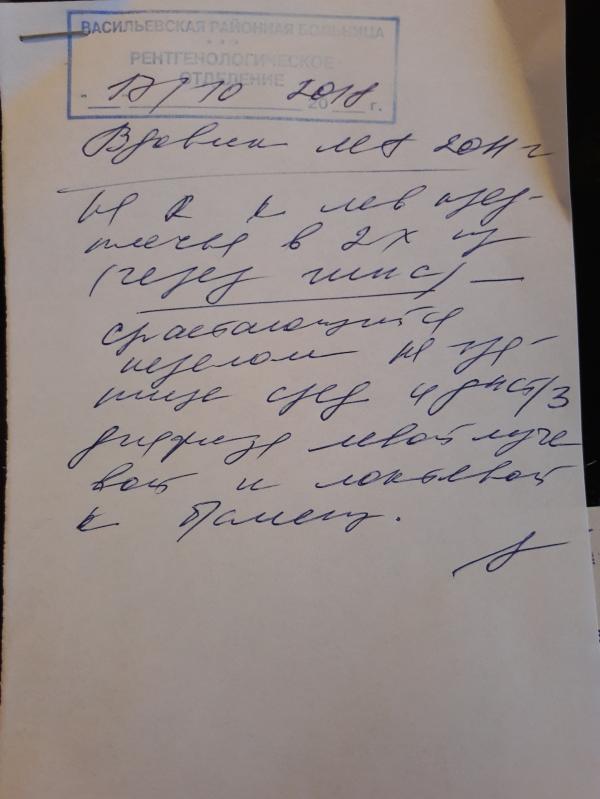 ВАСИЛЬЕВСКАЯ РАЙОННАЯ БОЛЬНИЦА
РЕНТГЕНОЛОГИЧЕСКОЕ
ОТДЕЛЕНИЕ
" 17/10 2018 г.
2011 г
На R к лев пред-
плечья в 2х пр
(через гипс) —
срастающийся
перелом на гра-
нице сред и дист/3
диафиза левой луче
вой и локтевой
к